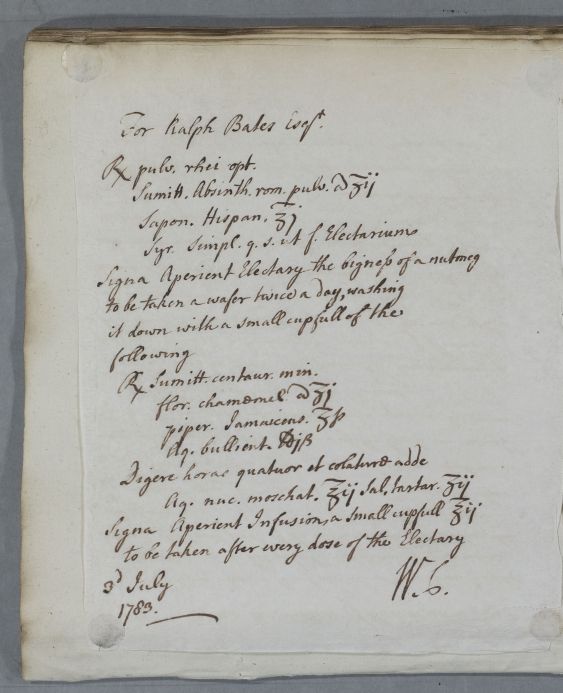 For Ralph Bates Esqr.
℞ pulv. rhei opt.
Sumitt. Absinth. rom. pulv. a ʒij
Sapon. Hispan. ʒj
Syr. Simpl. q. s. ut f. Electarium
Signa Aperient Electary the bigness of a nutmeg
to be taken a wafer twice a day, washing
it down with a small cupfull of the
following
℞ Sumitt. centaur. min.
flor. chamœmel a ʒj
piper. Jamaicens. ʒß
Aq. bullient. ℔jß
Digere horas quatuor et colaturæ adde
Aq. nuc. moschat. ℥ij Sal, tartar. ʒij
Signa Aperient Infusion, a small cupfull ℥ij
to be taken after every dose of the Electary
3d July
1783.
W. C.